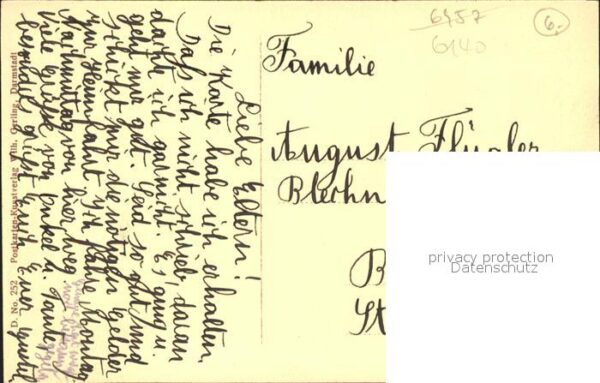 6457
6140
6.
Familie
August Flügler
Blechn
B
St
privacy protection
Datenschutz
Liebe Eltern!
Die Karte habe ich erhalten.
Daß ich nicht schrieb, daran
dachte ich garnicht. Es ging u.
geht mir gut. Seid so gut und
schickt mir die nötigen Gelder
zur Heimfahrt. Ich fahre Montag
Nachmittag von hier weg.
Viele Grüße von Onkel u. Tante,
besonders grüßt Euch Euer
D. No. 252. Postkarten-Kunstverlag Wilh. Gerling, Darmstadt